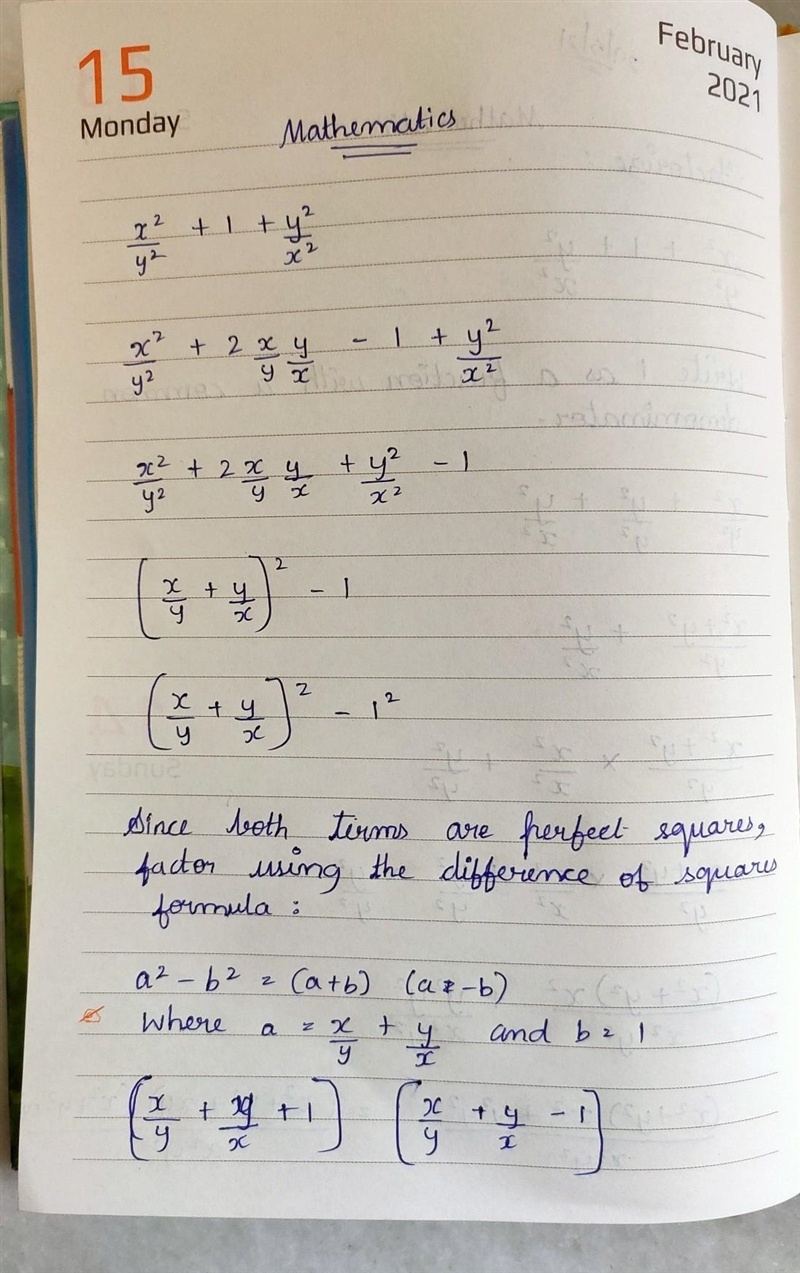 15
Monday
February
2021
Mathematics
x²/y² + 1 + y²/x²
x²/y² + 2 x/y y/x - 1 + y²/x²
x²/y² + 2 x/y y/x + y²/x² - 1
(x/y + y/x)² - 1
(x/y + y/x)² - 1²
Since both terms are perfect squares,
factor using the difference of squares
formula :
a² - b² = (a+b) (a-b)
Where a = x/y + y/x and b = 1
(x/y + y/x + 1) (x/y + y/x - 1)